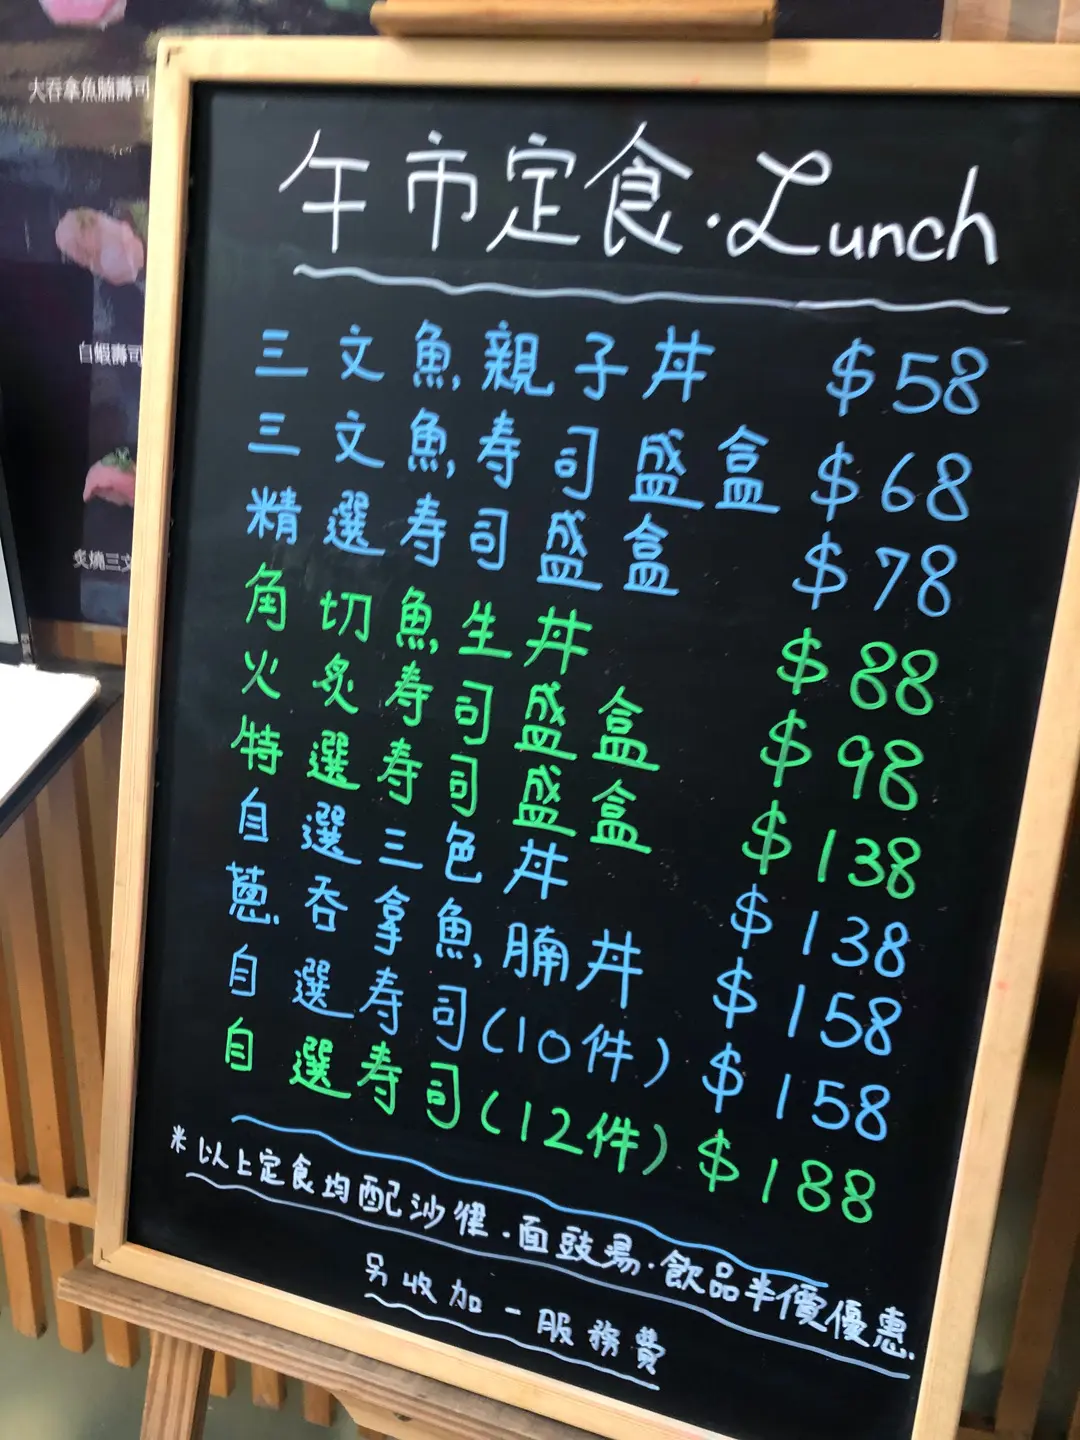 午市定食·Lunch
三文魚親子丼 $58
三文魚寿司盛盒 $68
精選寿司盛盒 $78
角切魚生丼 $88
火炙寿司盛盒 $98
特選寿司盛盒 $138
自選三色丼 $138
蔥吞拿魚腩丼 $158
自選寿司(10件) $158
自選寿司(12件) $188
*以上定食均配沙律·面豉湯·飲品半價優惠.
另收加一服務費
大吞拿魚腩壽司